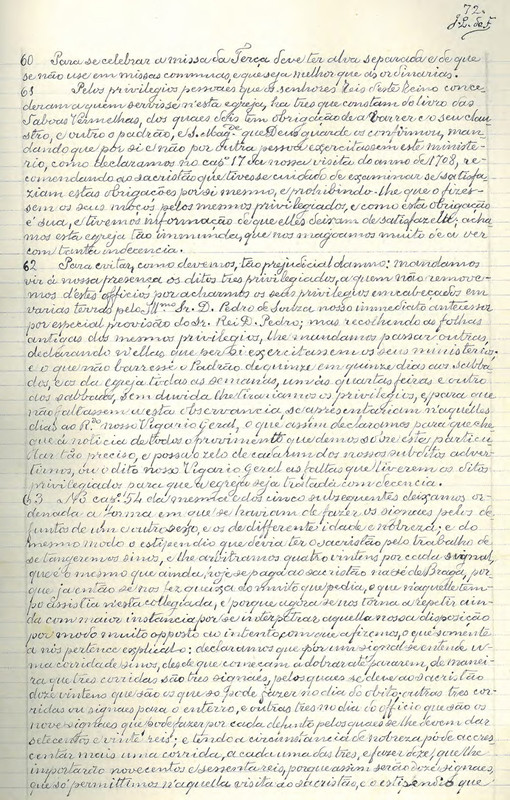 72.
J. L. de F.
60 Para se celebrar a missa da Terça deve ter alva separada e de que
se não use em missas communs, e que seja melhor que as ordinarias.
61 Pelos privilegios pessoaes que os senhores Reis deste Reino conce-
deram a quem servisse n'esta egreja, ha tres que constam do livro das
Taboas Vermelhas, dos quaes dois tem obrigação de a varrer e o seu clau-
stro, e outro o padrão, e S. Mag.de que Deus guarde os confirmou, man-
dando que por si e não por outra pessoa exercitassem este ministe-
rio, como declaramos no cap.º 17 da nossa visita do anno de 1708, re-
commendando ao sacristão que tivesse cuidado de examinar se satisfa-
ziam estas obrigações por si mesmo, e prohibindo-lhe que o fizes-
sem os seus moços pelos mesmos privilegiados, e como esta obrigação
é sua, e tivemos informação de que elles deixam de satisfazel-a; acha-
mos esta egreja tão immunda, que nos magoamos muito de a ver
com tanta indecencia.
62 Para evitar, como devemos, tão prejudicial damno: mandamos
vir á nossa presença os ditos tres privilegiados, a quem não remove-
mos d'estes officios por acharmos os seus privilegios encabeçados em
varias terras pelo Ill.mo Sr. D. Pedro de Souza, nosso immediato antecessor
por especial provisão do Sr. Rei D. Pedro; mas recolhendo as folhas
antigas dos mesmos privilegios, lhe mandamos passar outras,
declarando n'ellas que per si exercitassem os seus ministerios:
e o que não barresse o Padrão de quinze em quinze dias aos sabba-
dos, e os da egreja todas as semanas, um ás quartas feiras e outro
dos sabbados, sem duvida lhe tirariamos os privilegios, e para que
não faltassem a esta observancia, se apresentariam n'aquelles
dias ao R.do nosso Vigario Geral, o que assim declaramos para que lhe
que á noticia de todos o provimento que demos sobre este particu-
lar tão preciso, e possa o zelo de cada um dos nossos subditos adver-
tirnos, ou o dito nosso Vigario Geral as faltas que tiverem os ditos
privilegiados para que a egreja seja tratada com decencia.
63 No cap.º 54 da mesma e dos cinco subsequentes deixamos or-
denada a forma em que se haviam de fazer os signaes pelos de-
funtos de um e outro sexo, e os de differente idade e nobreza; e do
mesmo modo o estipendio que devia ter o sacristão pelo trabalho de
se tangerem os sinos, e lhe arbitramos quatro vintens por cada signal,
que é o mesmo que ainda hoje se paga ao sacristão na sé de Braga, por-
que já então se nos fez queixa do muito que pedia, o que n'aquelle tem-
po assistia n'esta collegiada, e porque agora se nos torna a repetir ain-
da com maior instancia por se interpetrar aquella nossa disposição
por modo muito opposto ao intento, com que a fizemos, o que somente
a nós pertence explical-o: declaramos que por um signal se entende u-
ma corrida de sinos, desde que começam a dobrar até pararem, de manei-
ra que tres corridas são tres signaes, pelos quaes se deve ao sacristão
doze vintens que são os que se pode fazer no dia do obito; outras tres cor-
ridas ou signaes para o enterro, e outras tres no dia do officio que são os
nove signaes que pode fazer por cada defunto pelos quaes se lhe devem dar
setecentos e vinte reis; e tendo a circunstancia de nobreza pode accres-
centar mais uma corrida, a cada uma das tres, e fazer doze, que lhe
importarão novecentos e sessenta reis, porque assim serão doze signaes,
que só permittimos n'aquella visita ao sacristão, e o estipendio que